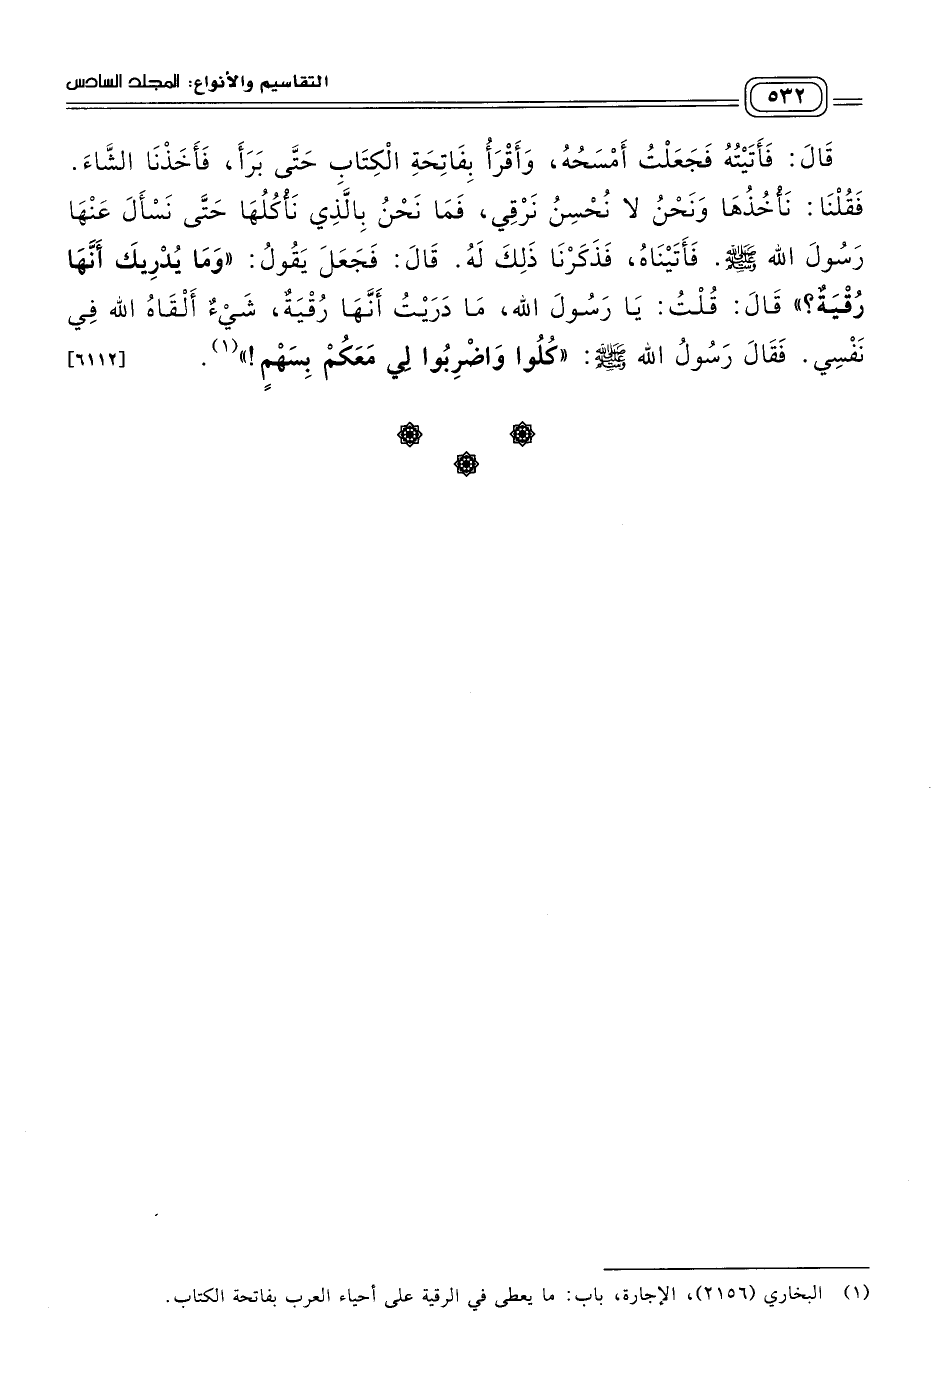 التقاسيم والأنواع: المجلد السادس
٥٣٢
قَالَ: فَأَتَيْتُهُ فَجَعَلْتُ أَمْسَحُهُ، وَأَقْرَأُ بِفَاتِحَةِ الْكِتَابِ حَتَّى بَرَأَ، فَأَخَذْنَا الشَّاءَ.
فَقُلْنَا: نَأْخُذُهَا وَنَحْنُ لا نُحْسِنُ نَرْقِي، فَمَا نَحْنُ بِالَّذِي نَأْكُلُهَا حَتَّى نَسْأَلَ عَنْهَا
رَسُولَ الله ﷺ. فَأَتَيْنَاهُ، فَذَكَرْنَا ذَلِكَ لَهُ. قَالَ: فَجَعَلَ يَقُولُ: «وَمَا يُدْرِيكَ أَنَّهَا
رُقْيَةٌ؟» قَالَ: قُلْتُ: يَا رَسُولَ الله، مَا دَرَيْتُ أَنَّهَا رُقْيَةٌ، شَيْءٌ أَلْقَاهُ الله فِي
نَفْسِي. فَقَالَ رَسُولُ الله ﷺ: «كُلُوا وَاضْرِبُوا لِي مَعَكُمْ بِسَهْمٍ!»(١). [٦١١٢]
(١) البخاري (٢١٥٦)، الإجارة، باب: ما يعطى في الرقية على أحياء العرب بفاتحة الكتاب.